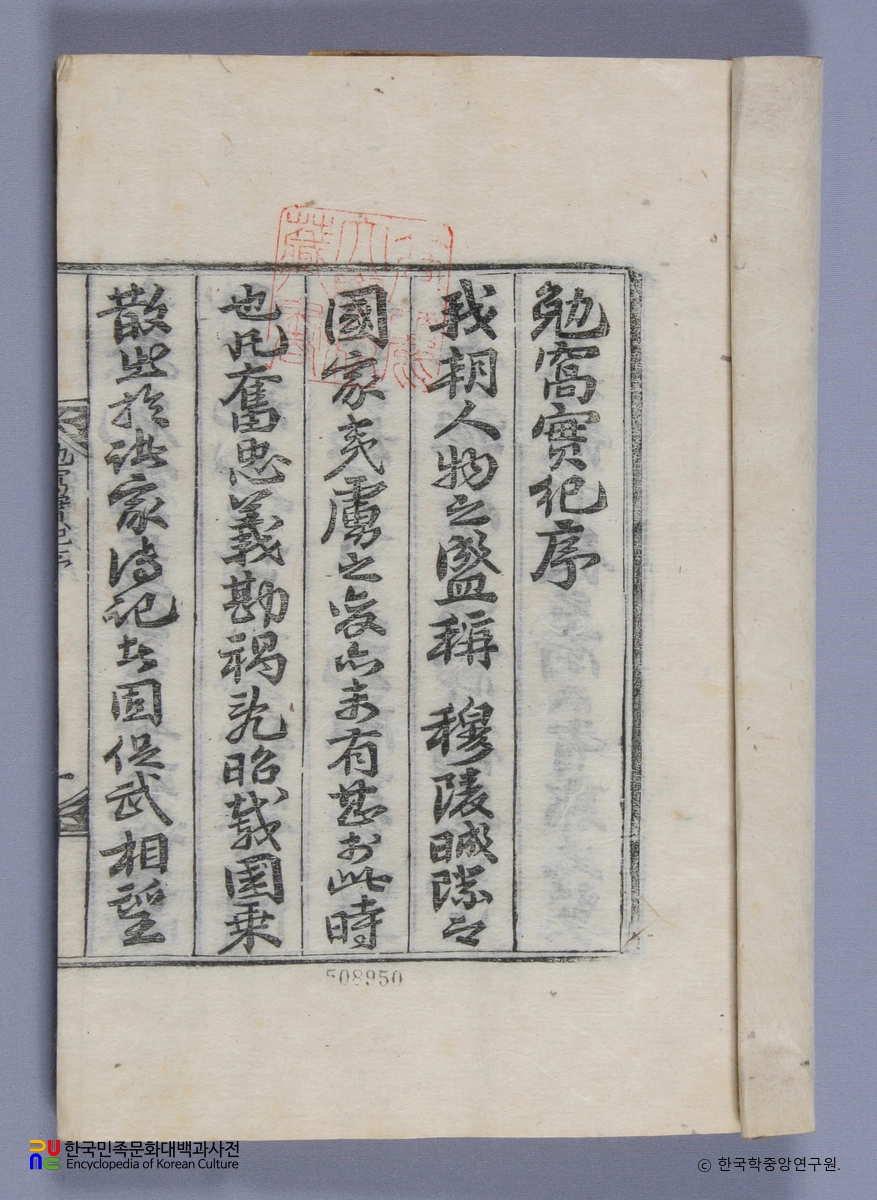 勉窩實紀序
我朝人物之盛稱 穆陵晠際
國家夷虜之變亦未有甚於此時
也凡奮忠義勘禍亂昭載國乘
散出於諸家傳記者固促武相望
508950
한국민족문화대백과사전
Encyclopedia of Korean Culture
© 한국학중앙연구원.